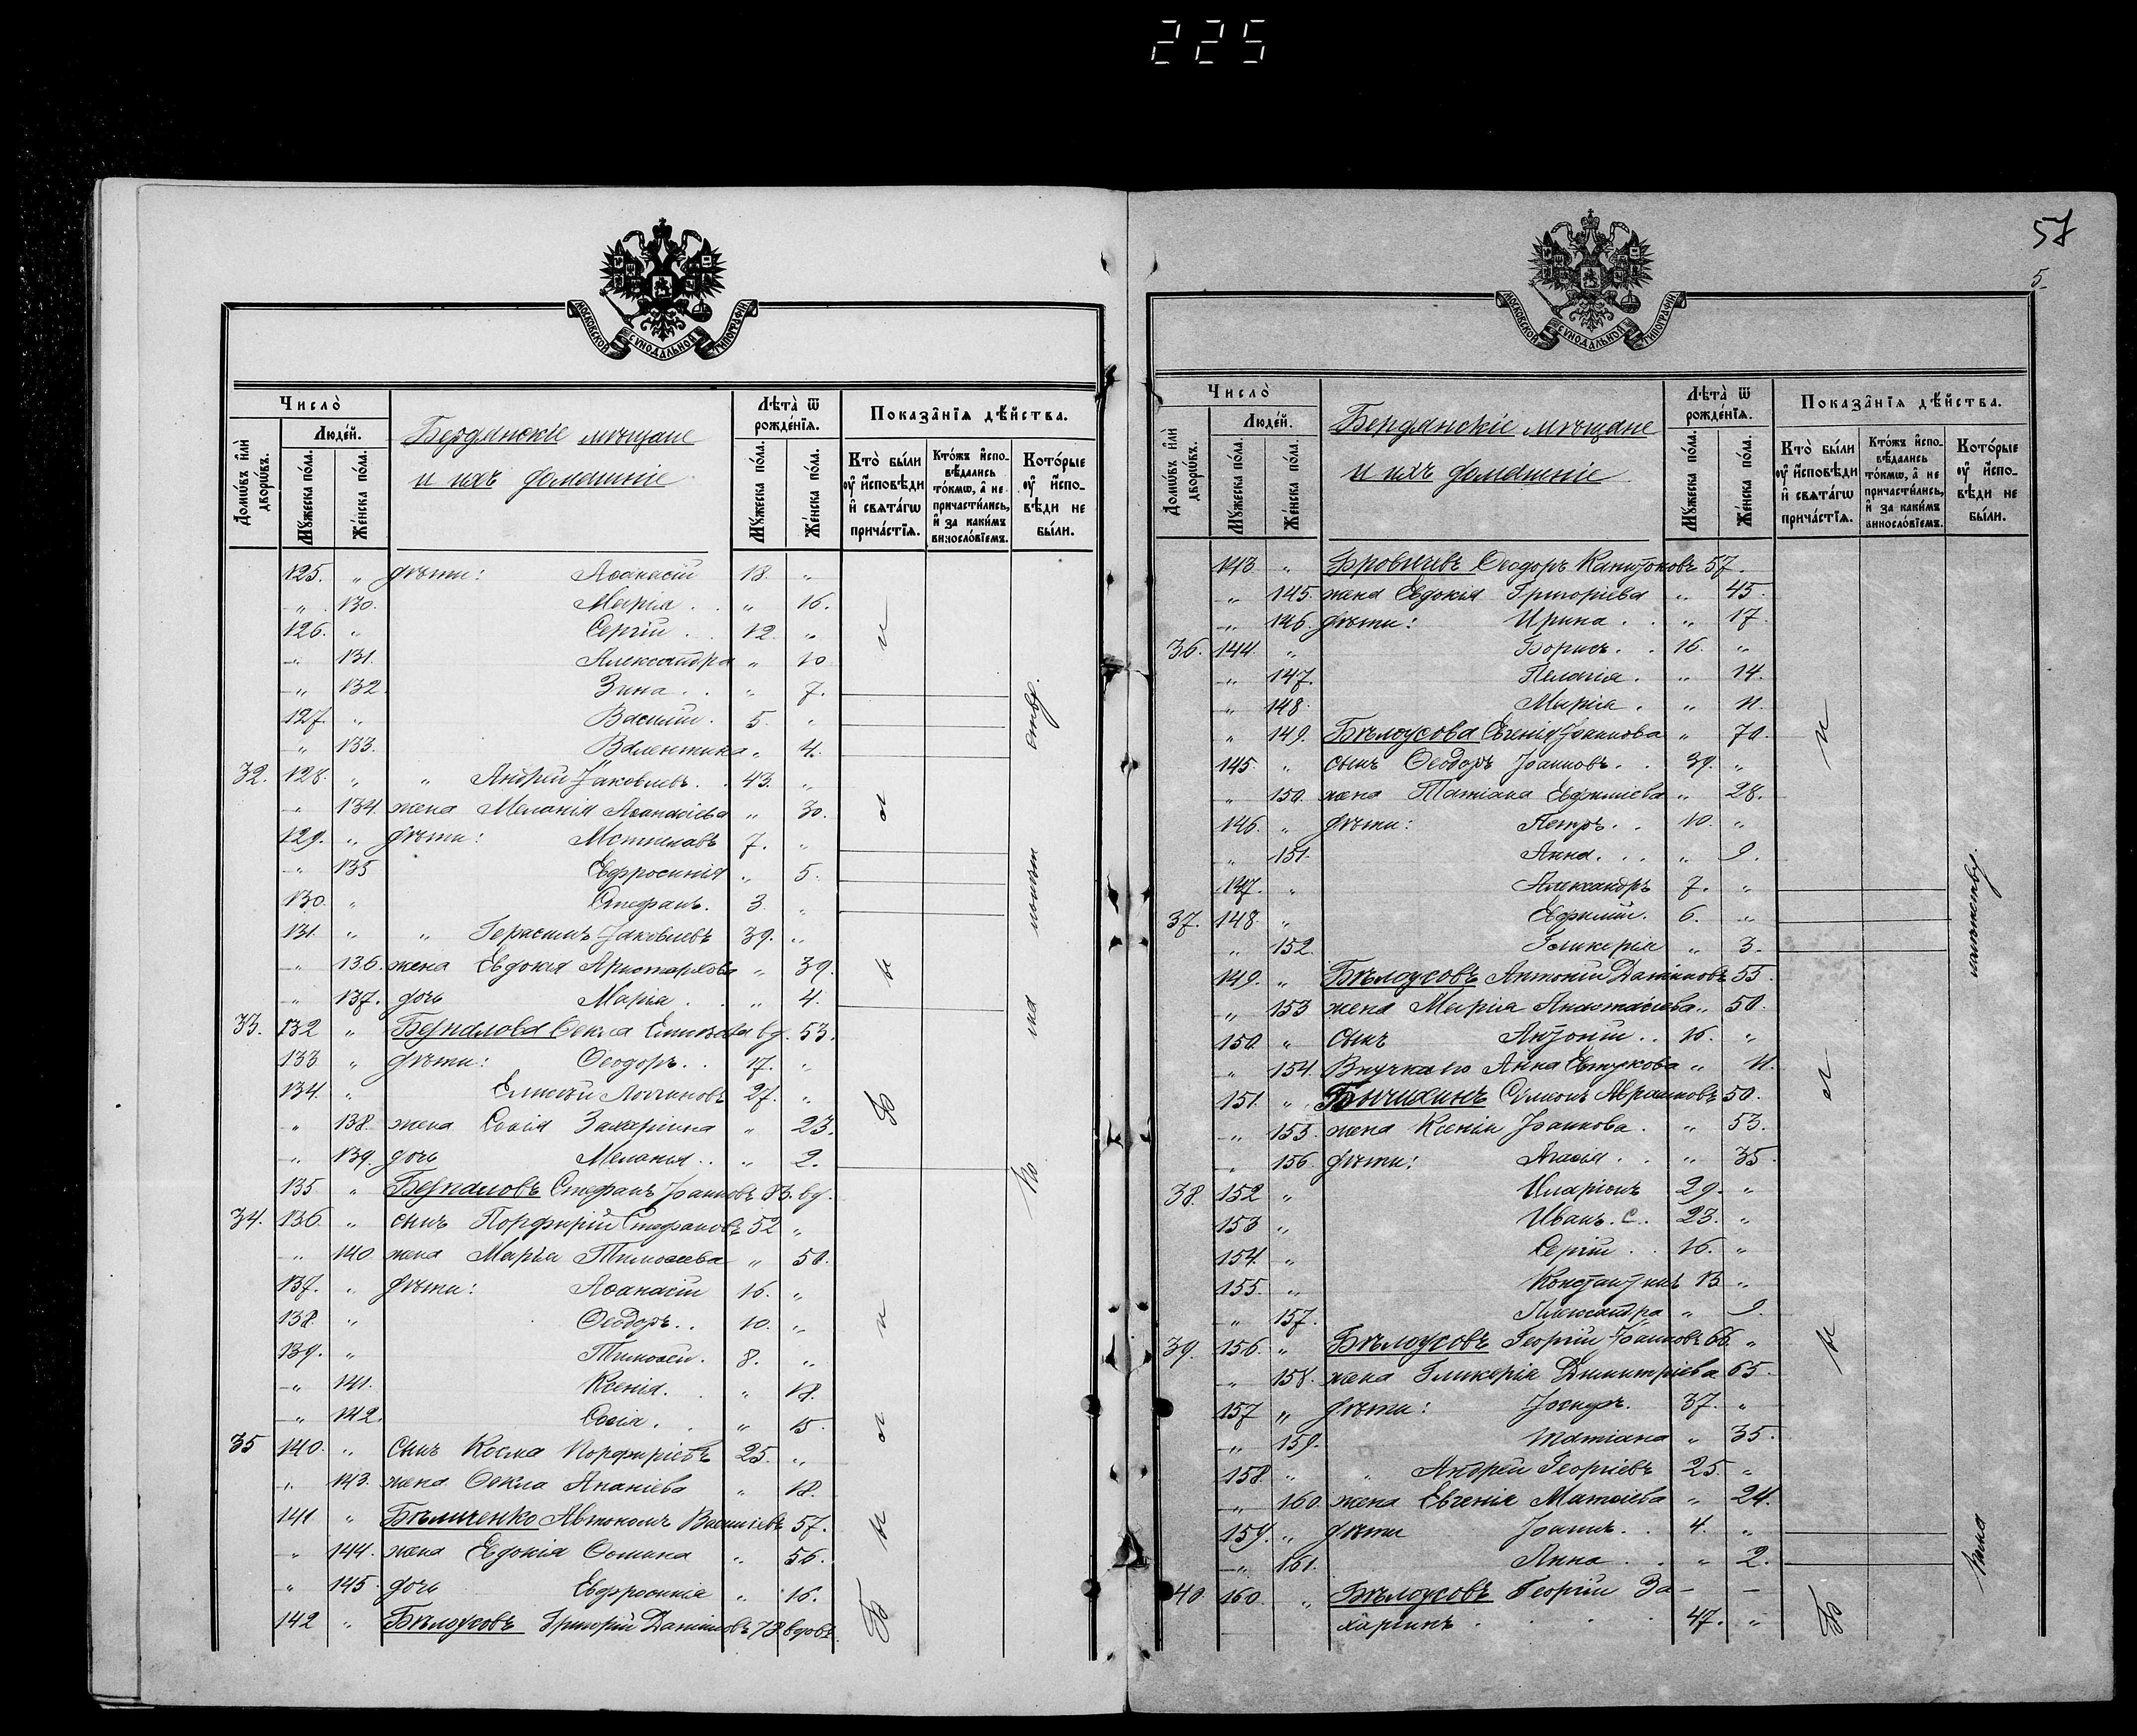 225
МОСКОВСКОЙ СУНОДАЛЬНОЙ ТИПОГРАФІИ
Число̀
Людей.
Домѡвъ и҆лѝ дворѡвъ.
Мꙋжеска по́ла.
Же́нска по́ла.
Бердянскіе мѣщане
и ихъ домашніе
Лѣта̀ ѿ рожде́нїѧ.
Мꙋжеска по́ла.
Же́нска по́ла.
Показа̑нїѧ дѣ́йства.
Кто̀ бы́ли ᲂу҆ и҆́сповѣди и҆ свѧта́гѡ прича́стїѧ.
Кто́жъ и҆спо-вѣ́дались то́кмѡ, а҆ не причасти́лись, и҆ за каки́мъ винослѡ́вїемъ.
Кото́рые ᲂу҆ и҆́спо-вѣди не бы́ли.
125. „ дѣти: Аѳанасій 18. „
„ 130. Марія . . „ 16.
126. „ Сергій . . 12. „
„ 131. Александра „ 10
„ 132. Зина . . „ 7.
127. „ Василій . 5. „
„ 133. Валентина „ 4.
32. 128. „ „ Андрей Іаковлевъ . . 43. „
„ 134. жена Меланія Аѳанасіева „ 30.
129. „ дѣти: Мстиславъ 7. „
„ 135 Евфросинія „ 5.
130. „ Стефанъ. 3. „
131. „ „ Герасимъ Іаковлевъ 39. „
„ 136. жена Евдокія Аристархова „ 39.
„ 137. дочь Марія . . „ 4.
33. 132 „ Ѳекла вд. 53.
133 „ дѣти: Ѳеодоръ . . 17. „
134. „ Елисей 27. „
„ 138. жена Софія Захаріина „ 23.
„ 139. дочь Меланья . . „ 2.
135 „ Стефанъ Іоанновъ 83. вд.
34. 136. „ сынъ Порфирій Стефановъ 52 „
„ 140. жена Марѳа Тимоѳеева „ 50.
137. „ дѣти: Аѳанасій 16. „
138. „ Ѳеодоръ . . 10. „
139. „ Тимоѳей. 8. „
„ 141. Ксенія. . „ 18.
„ 142. Софія . . „ 15.
35 140. „ сынъ Косма Порфиріевъ 25. „
„ 143. жена Ѳекла Ананіева „ 18.
141 „ Бѣличенко Автономъ Василіевъ 57.
„ 144. жена Евдокія Ѳомина „ 56.
„ 145. дочь Евфросинія „ 16.
142 „ Бѣлоусовъ Григорій Даніиловъ 78 вдовъ
Б
ы
л
и
Б
ы
л
и
По
57
5.
МОСКОВСКОЙ СУНОДАЛЬНОЙ ТИПОГРАФІИ
Число̀
Людей.
Домѡвъ и҆лѝ дворѡвъ.
Мꙋжеска по́ла.
Же́нска по́ла.
Бердянскіе мѣщане
и ихъ домашніе
Лѣта̀ ѿ рожде́нїѧ.
Мꙋжеска по́ла.
Же́нска по́ла.
Показа̑нїѧ дѣ́йства.
Кто̀ бы́ли ᲂу҆ и҆́сповѣди и҆ свѧта́гѡ прича́стїѧ.
Кто́жъ и҆спо-вѣ́дались то́кмѡ, а҆ не причасти́лись, и҆ за каки́мъ винослѡ́вїемъ.
Кото́рые ᲂу҆ и҆́спо-вѣди не бы́ли.
143 „ Ѳеодоръ Капитоновъ 57.
„ 145. жена Евдокія Григоріева „ 45.
„ 146. дѣти: Ирина . . „ 17.
36. 144. „ Борисъ . . 16. „
„ 147. Пелагія . „ 14.
„ 148. Марія . „ 11.
„ 149. Бѣлоусова Евгенія Іоаннова „ 70.
145. „ сынъ Ѳеодоръ Іоанновъ . . 39. „
„ 150. жена Татіана Евфиміева „ 28.
146. „ дѣти: Петръ . . 10. „
„ 151. Анна . . . „ 9.
147. „ Александръ 7. „
37. 148. „ Ефимій. 6. „
„ 152. Гликерія „ 3.
149. „ Бѣлоусовъ Антоній Даніиловъ 55.
„ 153 жена Марія Анастасіева „ 50.
150. „ сынъ Антоній . . 16. „
„ 154. Внучка его Анна „ 11.
151. „ Симеонъ Авраамовъ 50.
„ 155. жена Ксенія Іоаннова . „ 53.
„ 156. дѣти: Агаѳья . . „ 35.
38. 152 „ Иларіонъ 29. „
153 „ Иванъ. С. . 23. „
154. „ Сергій . . 16. „
155. „ Константинъ 13 „
„ 157. Александра „ 9.
39. 156. „ Бѣлоусовъ Георгій Іоанновъ 66. „
„ 158. жена Гликерія Димитріева 65.
157 „ дѣти: Іосифъ. 37. „
„ 159. Татіана „ 35.
158. „ „ Андрей Георгіевъ 25. „
„ 160. жена Евгенія Матѳіева „ 24.
159. „ дѣти Іоаннъ . . 4. „
„ 161. Анна . . „ 2.
40. 160. „ Бѣлоусовъ Георгій За- — —
харіинъ . . . . 47. „
Б
ы
л
и
малолетству.